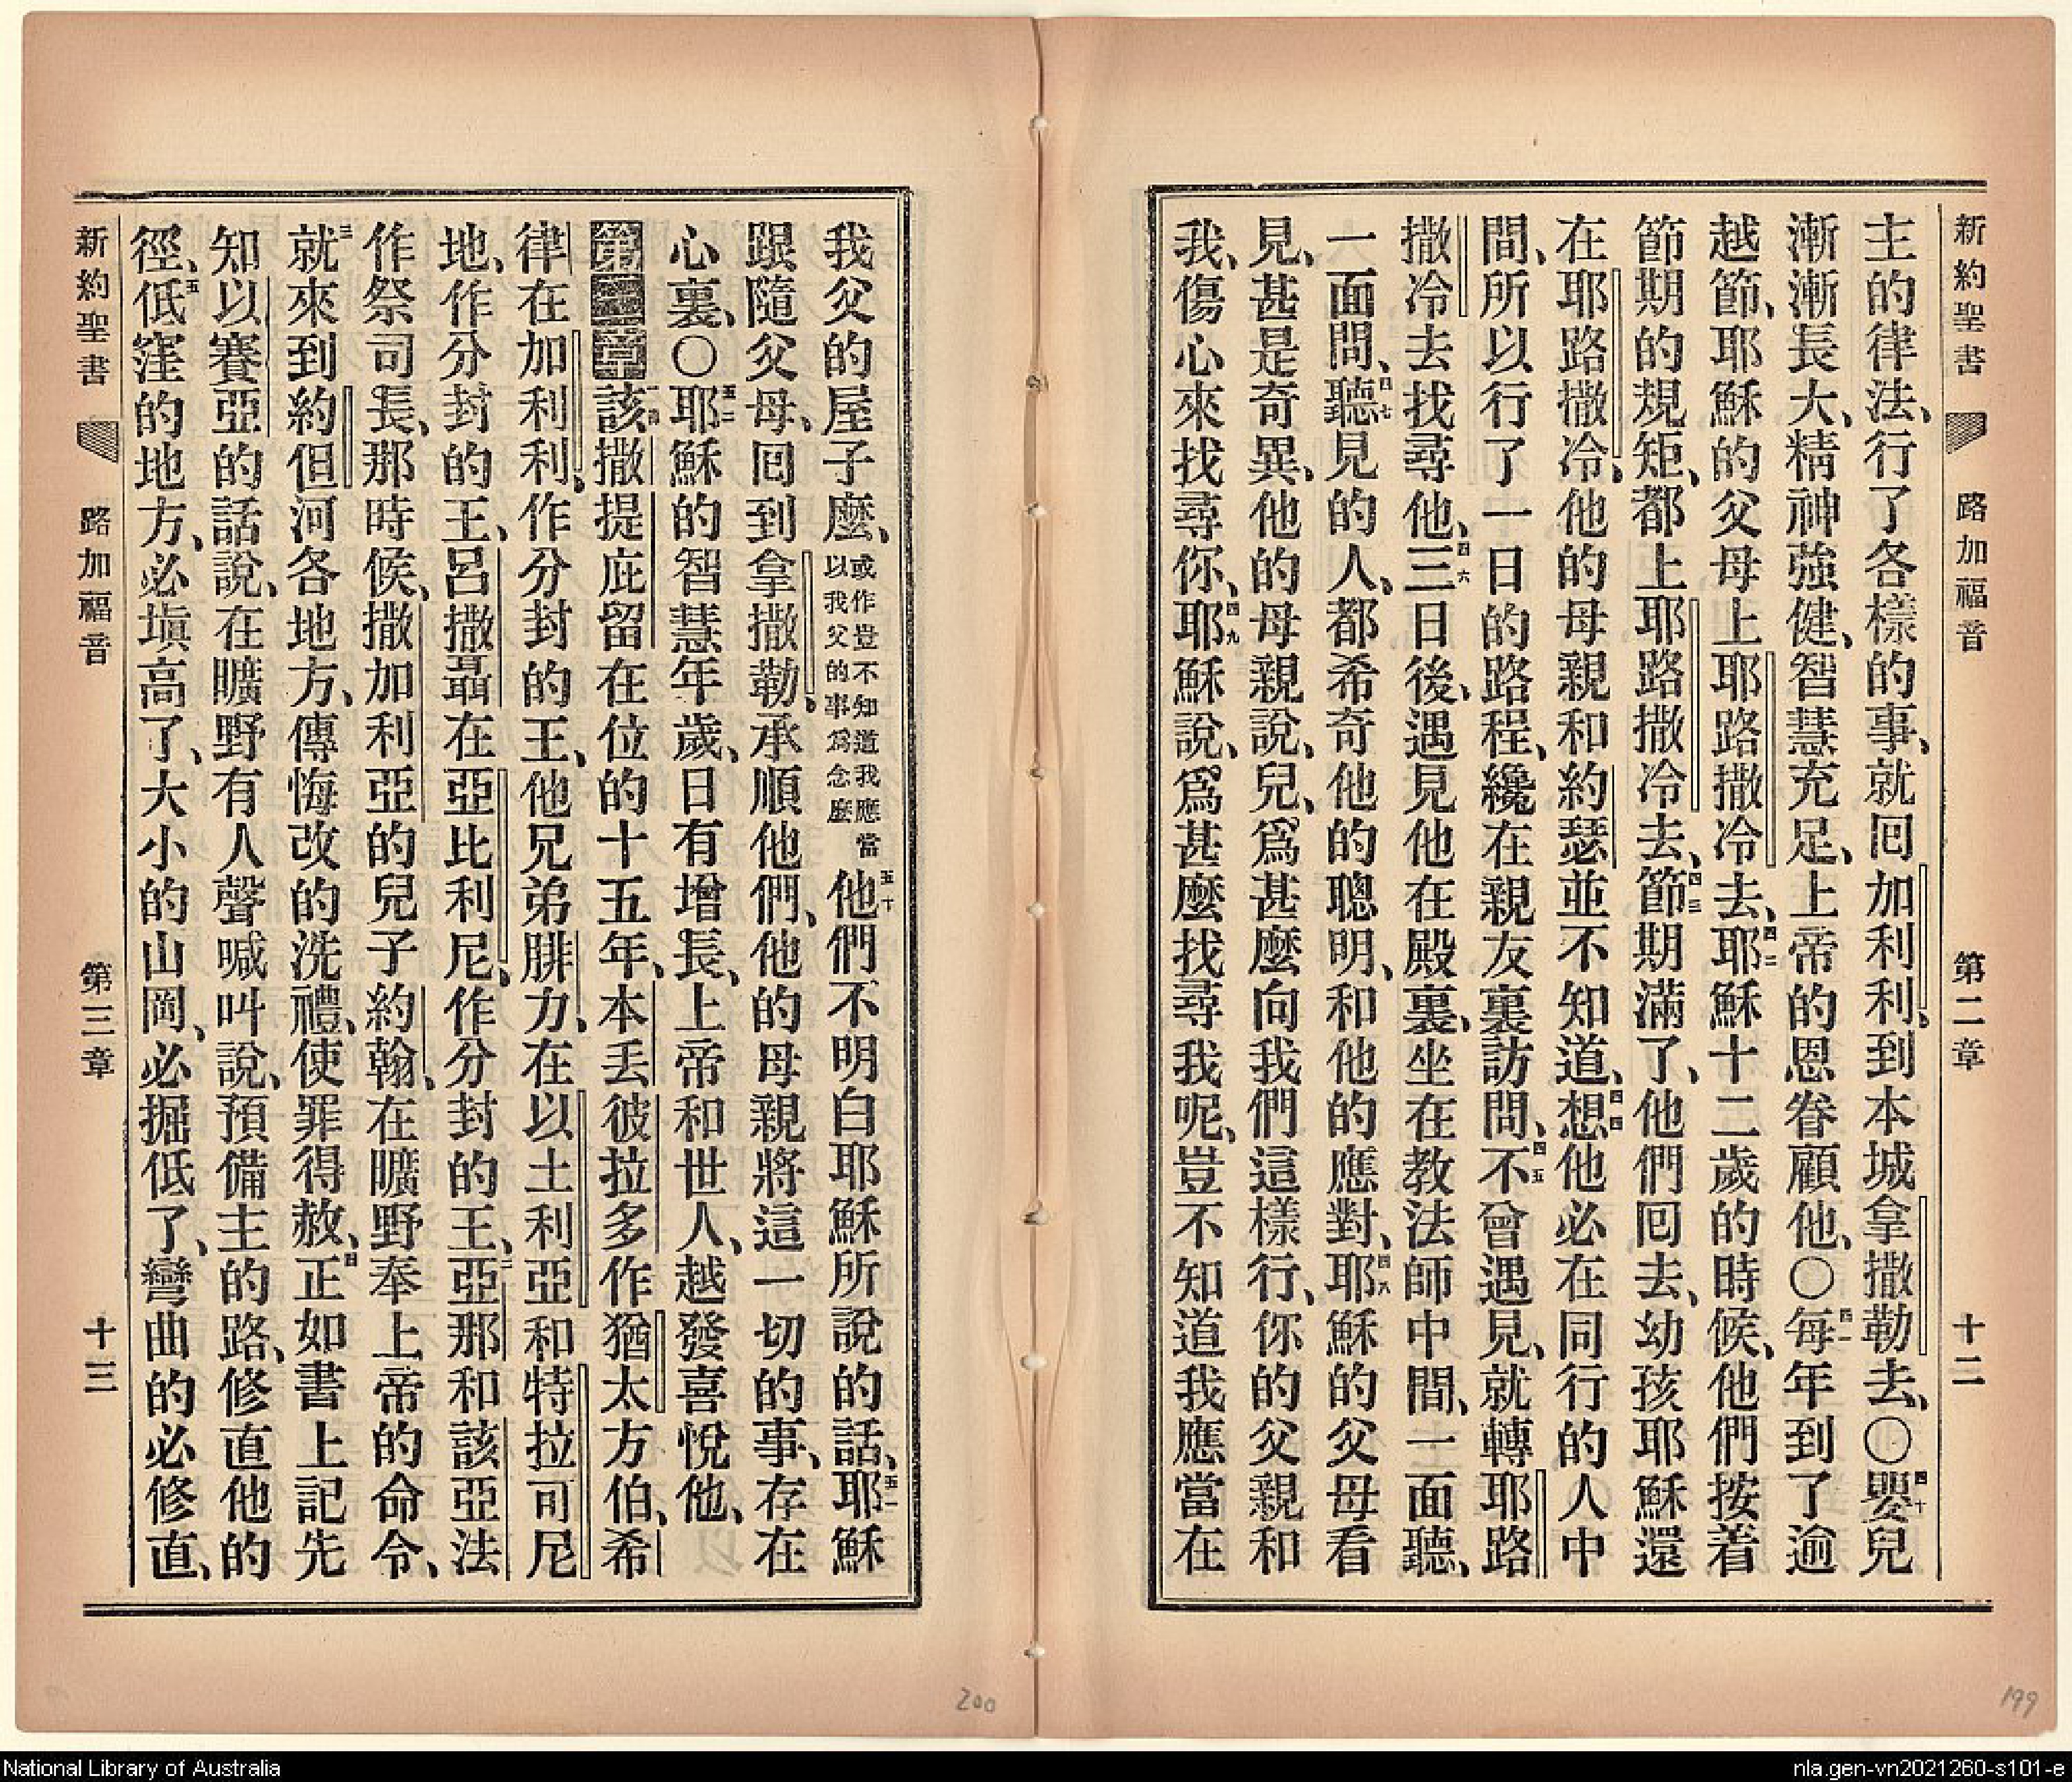 新約聖書 路加福音 第二章 十二
主的律法、行了各樣的事、就回加利利、到本城拿撒勒去、〇四十嬰兒
漸漸長大、精神強健、智慧充足、上帝的恩眷顧他、〇四一每年到了逾
越節、耶穌的父母上耶路撒冷去、四二耶穌十二歲的時候、他們按着
節期的規矩、都上耶路撒冷去、四三節期滿了、他們回去、幼孩耶穌還
在耶路撒冷、他的母親和約瑟並不知道、四四想他必在同行的人中
間、所以行了一日的路程、纔在親友裏訪問、四五不曾遇見、就轉耶路
撒冷去找尋他、四六三日後、遇見他在殿裏、坐在教法師中間、一面聽、
一面問、四七聽見的人、都希奇他的聰明、和他的應對、四八耶穌的父母看
見、甚是奇異、他的母親說、兒、爲甚麼向我們這樣行、你的父親和
我、傷心來找尋你、四九耶穌說、爲甚麼找尋我呢、豈不知道我應當在
我父的屋子麼、或作豈不知道我應當以我父的事爲念麼五十他們不明白耶穌所說的話、五一耶穌
跟隨父母、回到拿撒勒、承順他們、他的母親將這一切的事、存在
心裏、〇五二耶穌的智慧年歲、日有增長、上帝和世人、越發喜悅他、
第三章一該撒提庇留在位的十五年、本丟彼拉多作猶太方伯、希
律在加利利、作分封的王、他兄弟腓力、在以土利亞和特拉可尼
地、作分封的王、呂撒聶在亞比利尼、作分封的王、二亞那和該亞法
作祭司長、那時候、撒加利亞的兒子約翰、在曠野奉上帝的命令、
三就來到約但河各地方、傳悔改的洗禮、使罪得赦、四正如書上記先
知以賽亞的話說、在曠野有人聲喊叫說、預備主的路、修直他的
徑、五低窪的地方、必塡高了、大小的山岡、必掘低了、彎曲的必修直、
新約聖書 路加福音 第三章 十三
200
199
National Library of Australia
nla.gen-vn2021260-s101-e